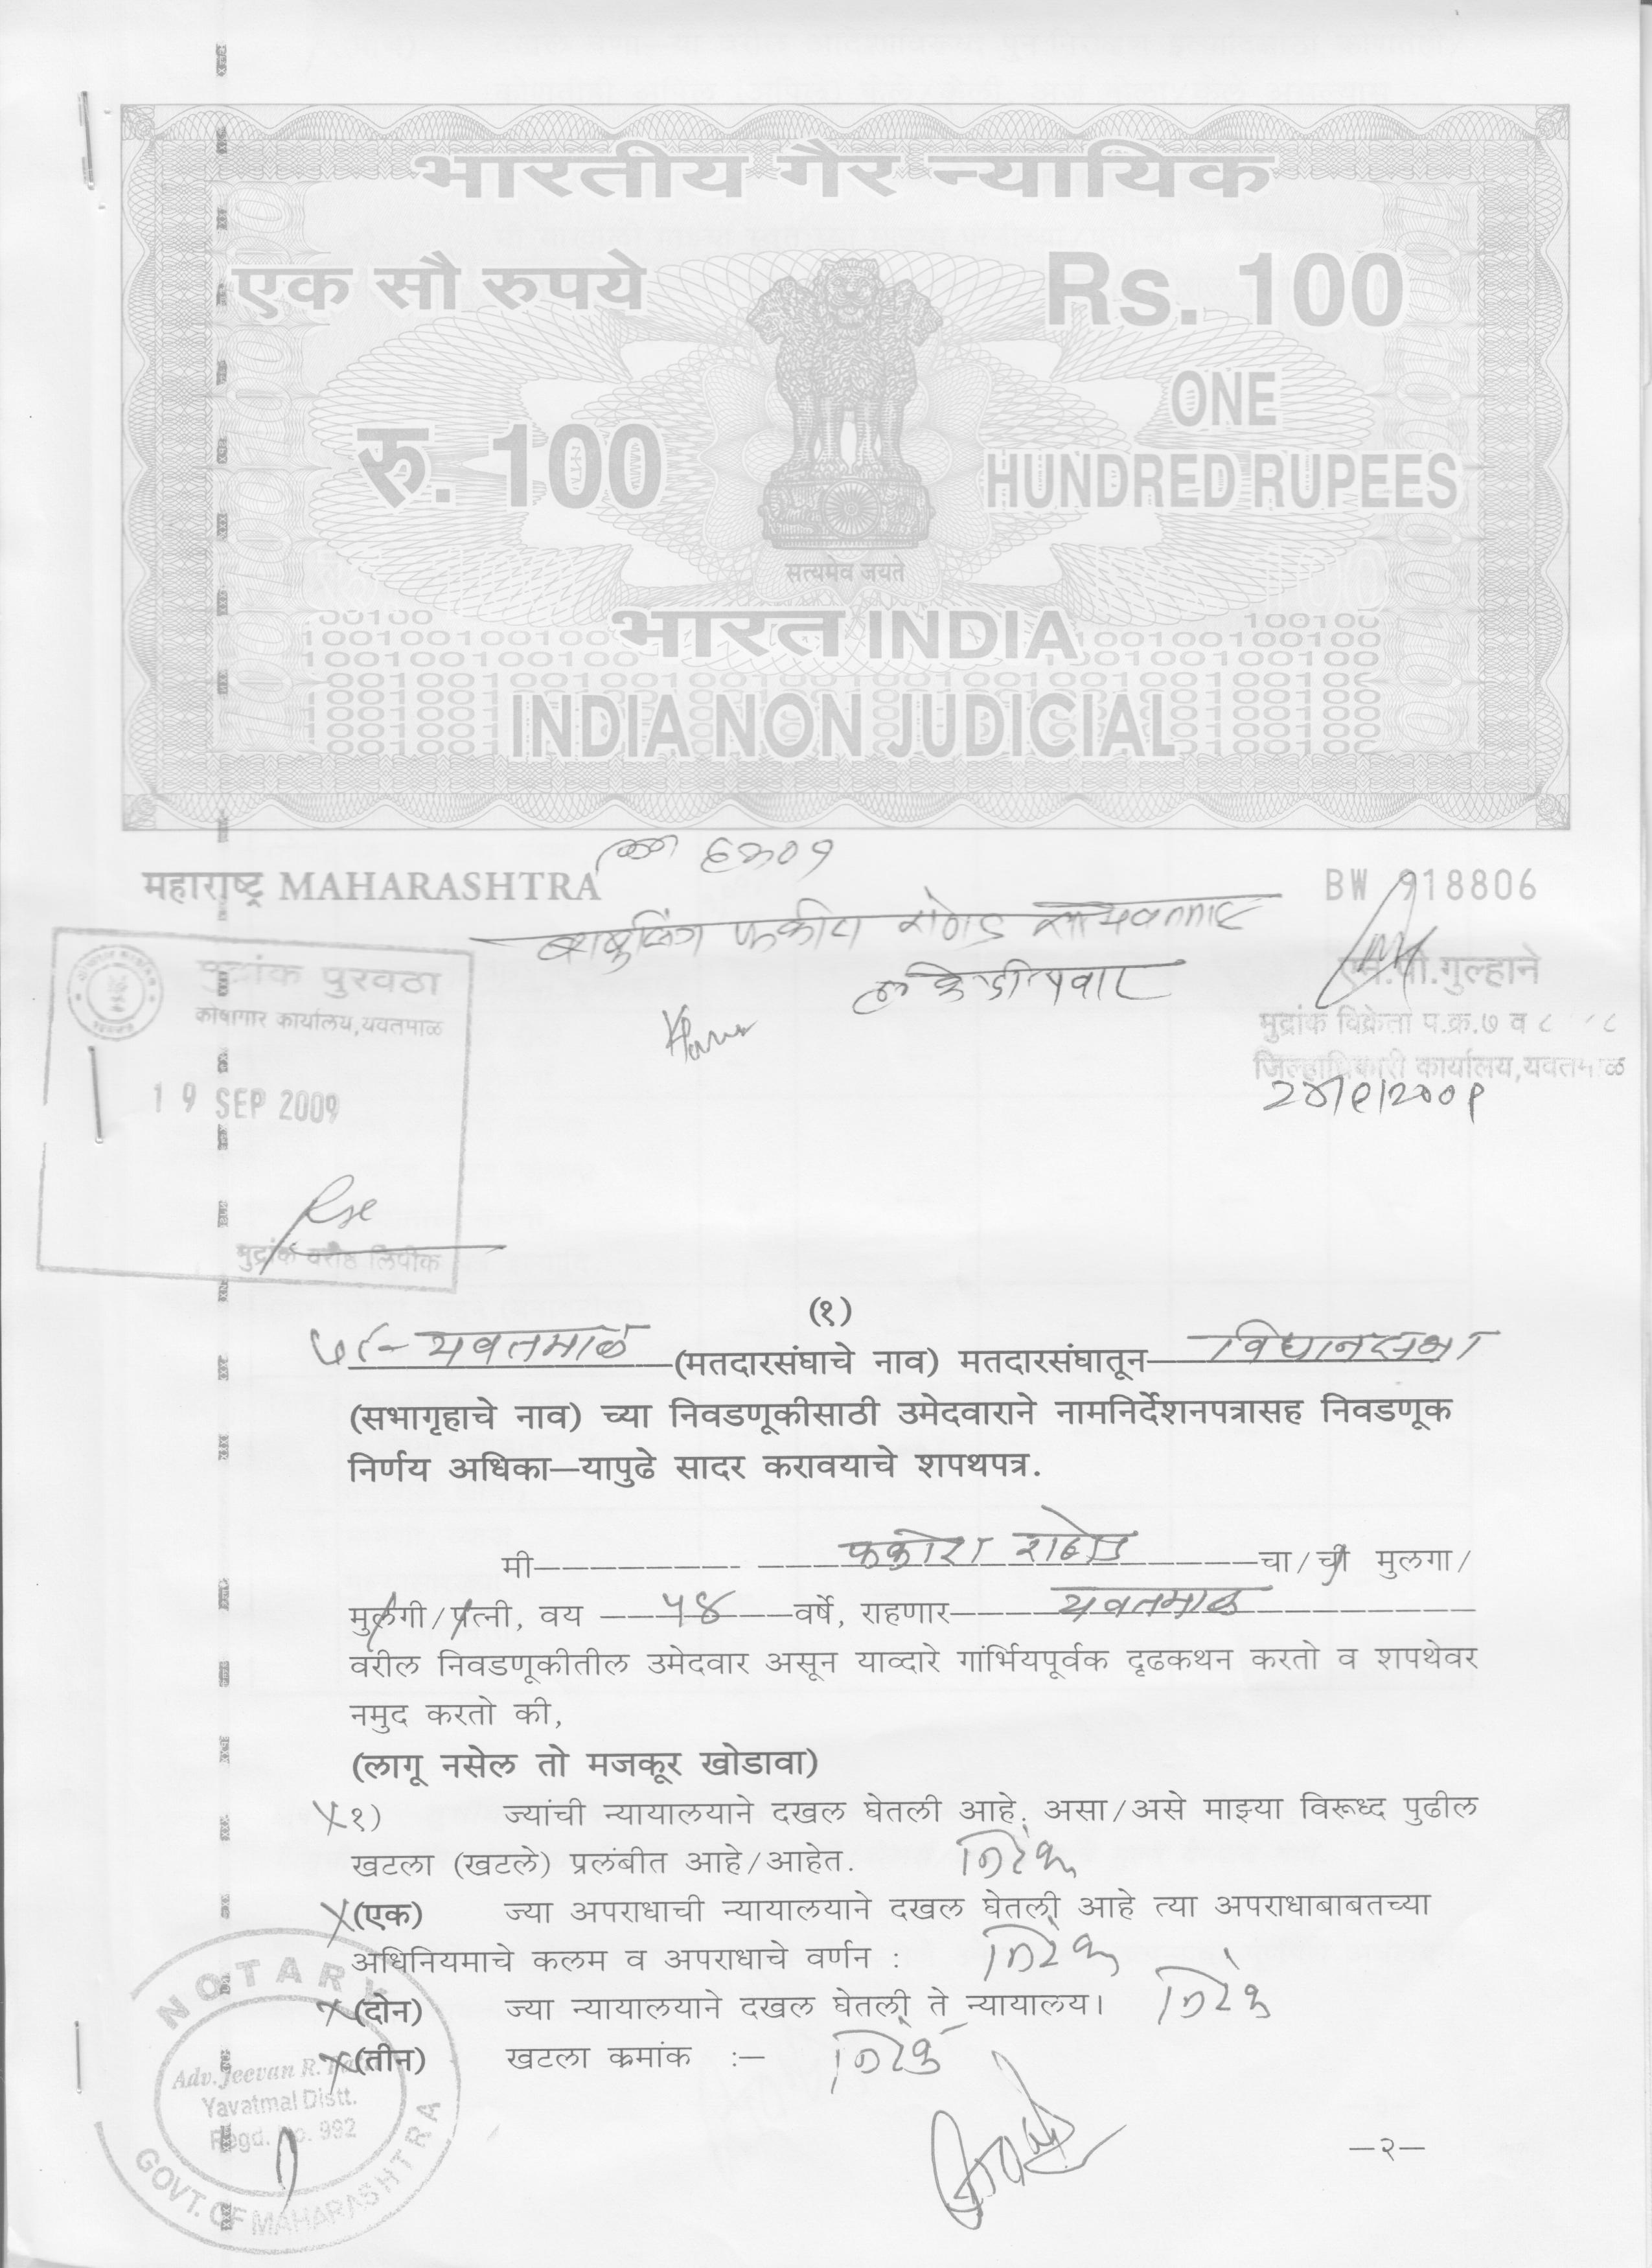 भारतीय गैर न्यायिक
एक सौ रुपये
Rs. 100
रु. 100
ONE
HUNDRED RUPEES
सत्यमेव जयते
भारत INDIA
INDIA NON JUDICIAL
महाराष्ट्र MAHARASHTRA
BW 918806
मुद्रांक पुरवठा
कोषागार कार्यालय, यवतमाळ
19 SEP 2009
गुल्हाने
मुद्रांक विक्रेता प.क्र.७ व ८
जिल्हाधिकारी कार्यालय, यवतमाळ
(१)
यवतमाळ (मतदारसंघाचे नाव) मतदारसंघातून विधानसभा
(सभागृहाचे नाव) च्या निवडणूकीसाठी उमेदवाराने नामनिर्देशनपत्रासह निवडणूक
निर्णय अधिका—यापुढे सादर करावयाचे शपथपत्र.
मी फकीरा राठोड चा/ची मुलगा/
मुलगी/पत्नी, वय ५४ वर्षे, राहणार यवतमाळ
वरील निवडणूकीतील उमेदवार असून याव्दारे गांर्भियपूर्वक दृढकथन करतो व शपथेवर
नमुद करतो की,
(लागू नसेल तो मजकूर खोडावा)
१) ज्यांची न्यायालयाने दखल घेतली आहे. असा/असे माझ्या विरूध्द पुढील
खटला (खटले) प्रलंबीत आहे/आहेत. निरंक
(एक) ज्या अपराधाची न्यायालयाने दखल घेतली आहे त्या अपराधाबाबतच्या
अधिनियमाचे कलम व अपराधाचे वर्णन : निरंक
(दोन) ज्या न्यायालयाने दखल घेतली ते न्यायालय। निरंक
(तीन) खटला क्रमांक :— निरंक
NOTARY
Adv. Jeevan R.
Yavatmal Distt.
Regd. No. 992
GOVT. OF MAHARASHTRA
—२—